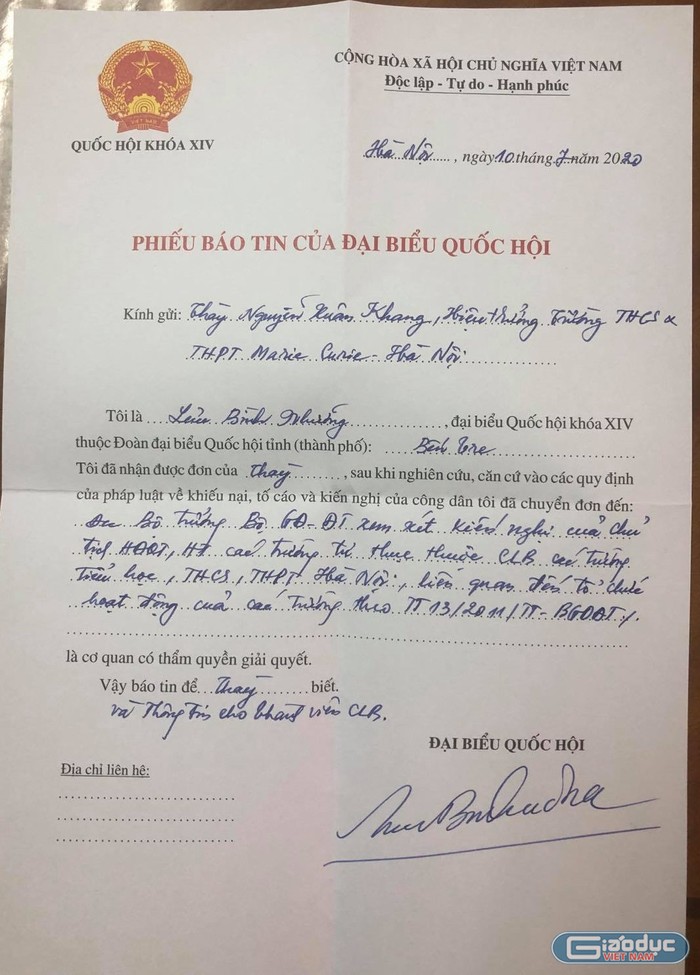 CỘNG HÒA XÃ HỘI CHỦ NGHĨA VIỆT NAM
Độc lập - Tự do - Hạnh phúc
VIỆT NAM
QUỐC HỘI KHÓA XIV
Hà Nội....., ngày 10 tháng 7 năm 2020
PHIẾU BÁO TIN CỦA ĐẠI BIỂU QUỐC HỘI
Kính gửi: Thày Nguyễn Xuân Khang, Hiệu trưởng Trường THCS &
THPT Marie Curie - Hà Nội
Tôi là Lưu Bình Nhưỡng, đại biểu Quốc hội khóa XIV
thuộc Đoàn đại biểu Quốc hội tỉnh (thành phố): Bến Tre
Tôi đã nhận được đơn của thày, sau khi nghiên cứu, căn cứ vào các quy định
của pháp luật về khiếu nại, tố cáo và kiến nghị của công dân tôi đã chuyển đơn đến:
Bộ trưởng Bộ GD-ĐT xem xét kiến nghị của chủ
tịch HĐQT, HT các trường tư thục thuộc CLB các trường
tiểu học, THCS, THPT Hà Nội, liên quan đến tổ chức
hoạt động của các trường theo TT 13/2011/TT-BGDĐT/.
là cơ quan có thẩm quyền giải quyết.
Vậy báo tin để thày biết.
và thông tin cho thành viên CLB.
ĐẠI BIỂU QUỐC HỘI
Địa chỉ liên hê:
Giáodục
VIỆT NAM